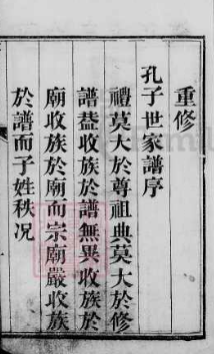 重修
孔子世家譜序
禮莫大於尊祖典莫大於修
譜葢收族於譜無異收族於
廟收族於廟而宗廟嚴收族
於譜而子姓秩况